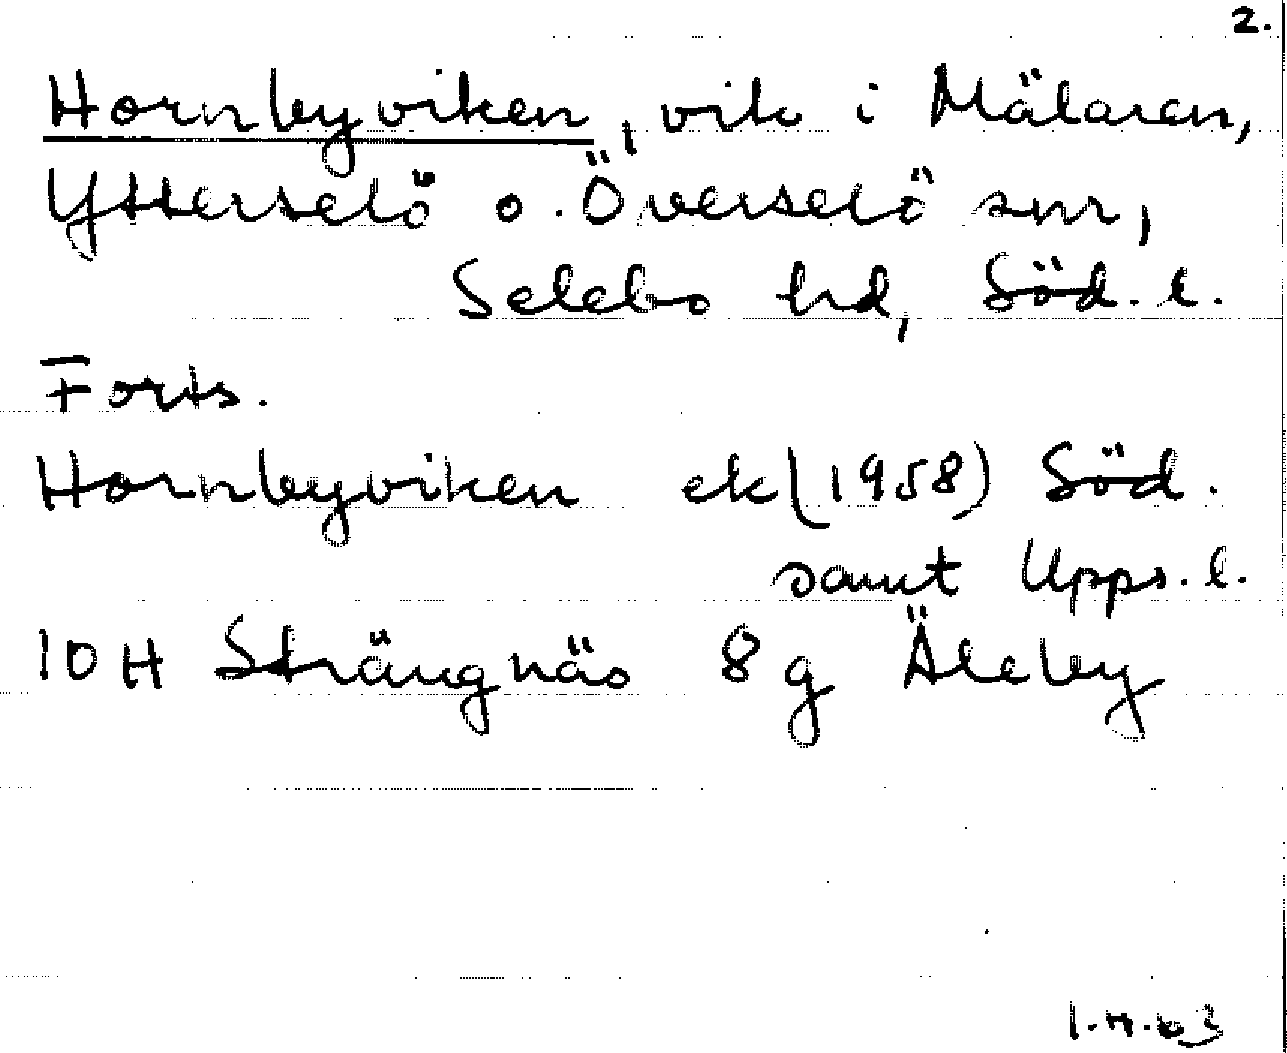 2.
Hornbyviken, vik i Mälaren,
Ytterselö o. Överselö snr,
Selebo hd, Söd. l.
Forts.
Hornbyviken ek (1958) Söd.
samt Upps. l.
10 H Strängnäs 8 g Äleby